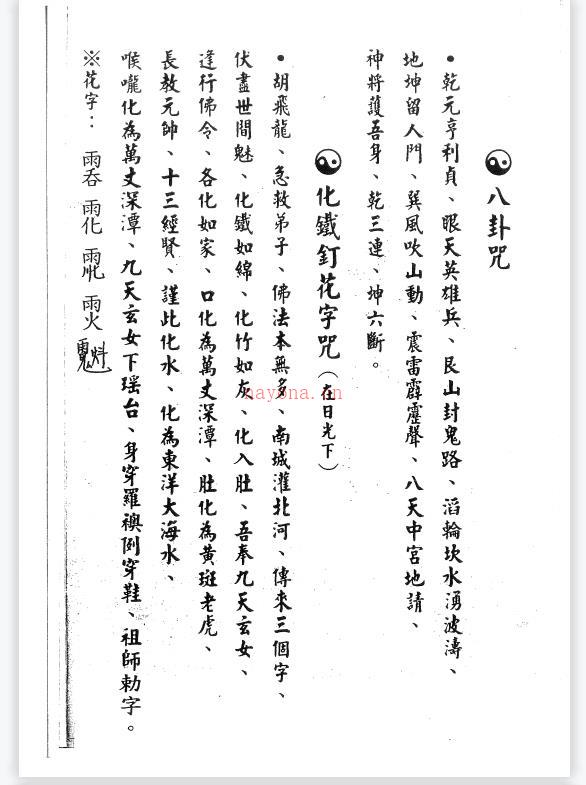 八卦咒
•乾元亨利貞、眼天英雄兵、艮山封鬼路、滔輪坎水湧波濤、
地坤留人門、巽風吹山動、震雷霹靂聲、八天中宮地請、
神將護吾身、乾三連、坤六斷。
化鐵釘花字咒（在日光下）
•胡飛龍、急救弟子、佛法本無多、南城灌北河、傳來三個字、
伏盡世間魅、化鐵如綿、化竹如灰、化入肚、吾奉九天玄女、
逢行佛令、各化如家、口化為萬丈深潭、肚化為黃斑老虎、
長教元帥、十三經賢、謹此化水、化為東洋大海水、
喉嚨化為萬丈深潭、九天玄女下瑶台、身穿羅襖例穿鞋、祖師勅字。
※花字：
nayona.cn